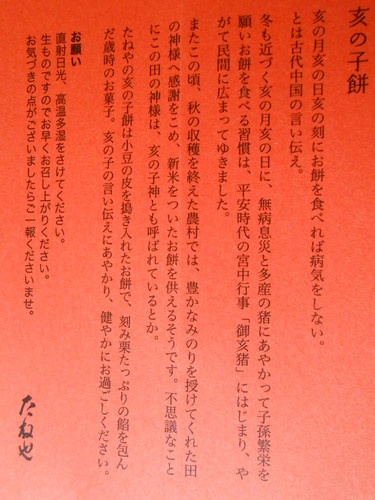 亥の子餅
亥の月亥の日亥の刻にお餅を食べれば病気をしない。
とは古代中国の言い伝え。
冬も近づく亥の月亥の日に、無病息災と多産の猪にあやかって子孫繁栄を
願いお餅を食べる習慣は、平安時代の宮中行事「御亥猪」にはじまり、や
がて民間に広まってゆきました。
またこの頃、秋の収穫を終えた農村では、豊かなみのりを授けてくれた田
の神様へ感謝をこめ、新米をついたお餅を供えるそうです。不思議なこと
にこの田の神様は、亥の子神とも呼ばれているとか。
たねやの亥の子餅は小豆の皮を搗き入れたお餅で、刻み栗たっぷりの餡を包ん
だ歳時のお菓子。亥の子の言い伝えにあやかり、健やかにお過ごしください。
お願い
直射日光、高温多湿をさけてください。
生ものですのでお早くお召し上がりください。
お気づきの点がございましたらご一報くださいませ。
たねや